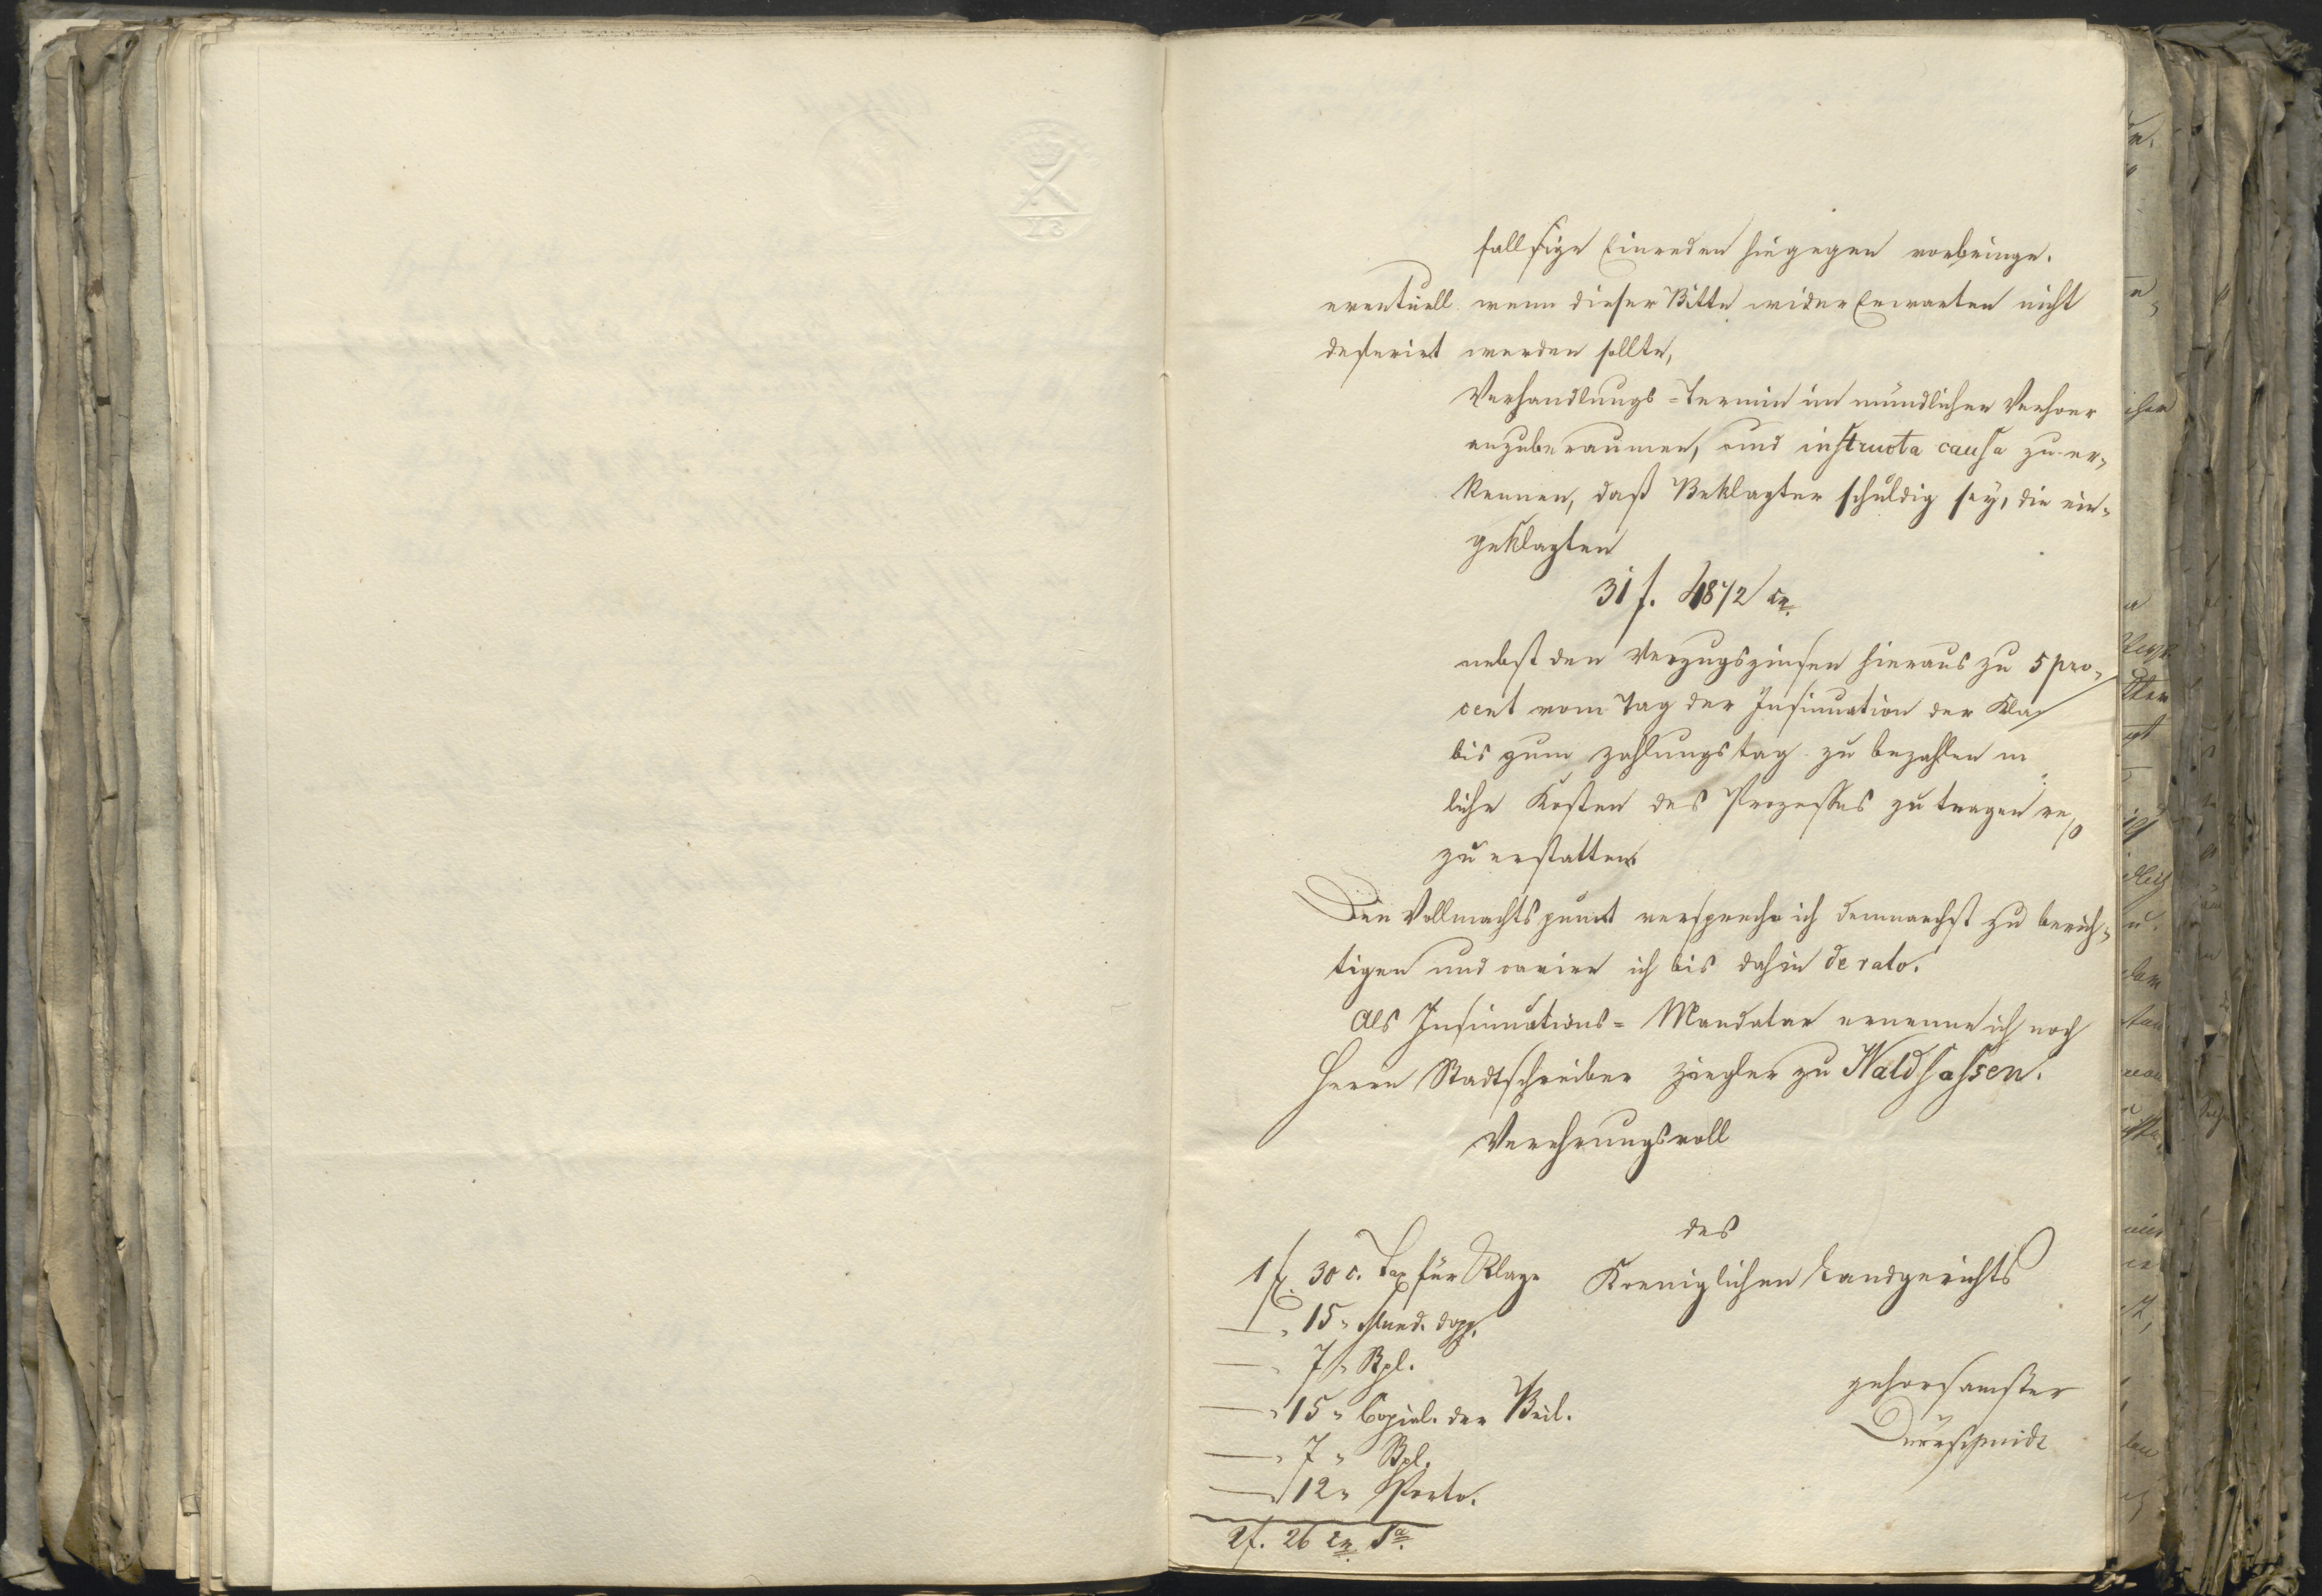 fallsige Einreden hingegen vorbringe.
eventuell wenn dieser Bitte wider Erwarten nicht
deferirt werden sollte,
Verhandlungs=Termin im mündlichen Verhoer
anzuberaumen, und instructa causa zu er=
kennen, daß Beklagter schuldig sey, die ein=
geklagten
31 f. 48 1/2 cr.
nebst den Verzugszinsen hieraus zu 5 pro=
cent vom Tag der Insinuation der Kla
bis zum Zahlungstag zu bezahlen
liche Kosten des Prozesses zu tragen resp
zu erstatten.
Den Vollmachtspunct verspreche ich demnaechst zu berich=
tigen und cavire ich bis dahin de rato.
Als Insinuations= Mandatar ernenne ich noch
Herrn Stadtschreiber Ziegler zu Waldsassen.
Verehrungsvoll
des
Koeniglichen Landgerichts
gehorsamster
Dürrschmidt
1 f. 30 c. Tax für Klage
— " 15 " Mund. dopp.
— " 7 " Stpl.
— " 15 " Copial. der Beil.
— " 7 " Stpl.
— " 12 " Porto.
2 f. 26 cr. Sa.